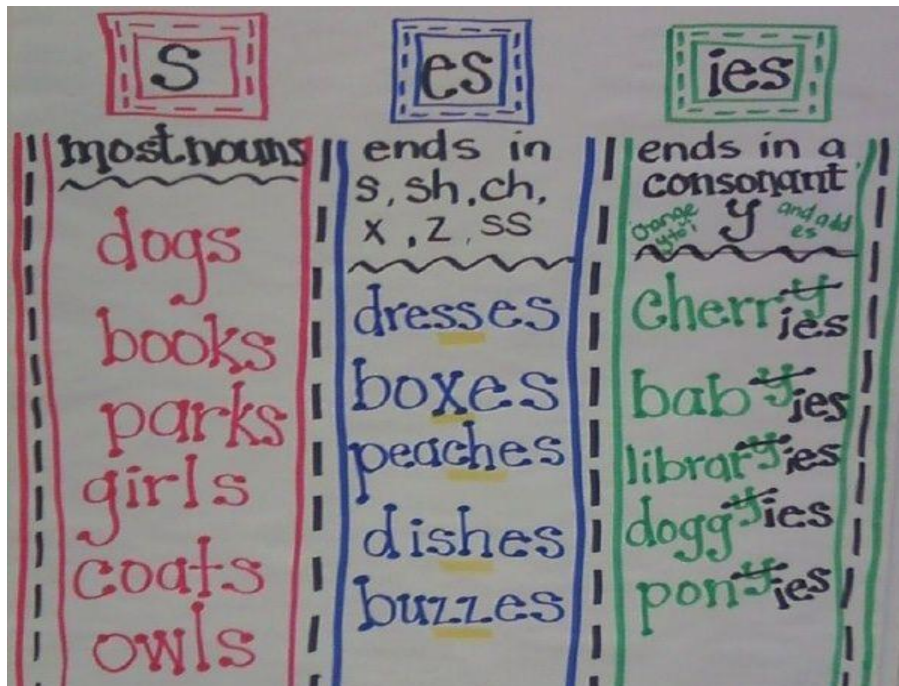 s
most nouns
dogs
books
parks
girls
coats
owls
es
ends in
s, sh, ch,
x, z, ss
dresses
boxes
peaches
dishes
buzzes
ies
ends in a
consonant
y
change
y to i
and add
es
cherryies
babyies
libraryies
doggyies
ponyies